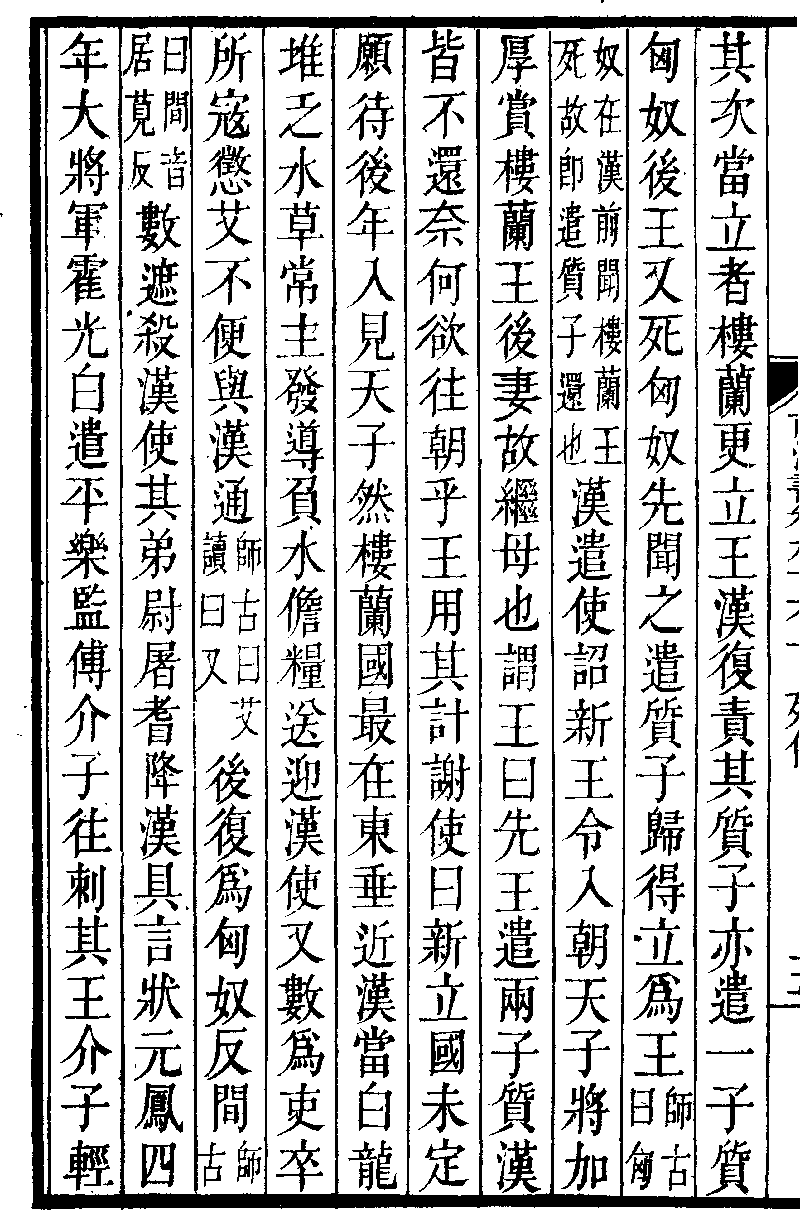 其次當立者樓蘭更立王漢復責其質子亦遣一子質
匈奴後王又死匈奴先聞之遣質子歸得立爲王師古曰匈
奴在漢前聞樓蘭王死故卽遣質子還也漢遣使詔新王令入朝天子將加
厚賞樓蘭王後妻故繼母也謂王曰先王遣兩子質漢
皆不還奈何欲往朝乎王用其計謝使曰新立國未定
願待後年入見天子然樓蘭國最在東垂近漢當白龍
堆乏水草常主發導負水儋糧送迎漢使又數爲吏卒
所寇懲艾不便與漢通師古曰艾讀曰又後復爲匈奴反間師古
曰間音居莧反數遮殺漢使其弟尉屠耆降漢具言狀元鳳四
年大將軍霍光白遣平樂監傅介子往刺其王介子輕